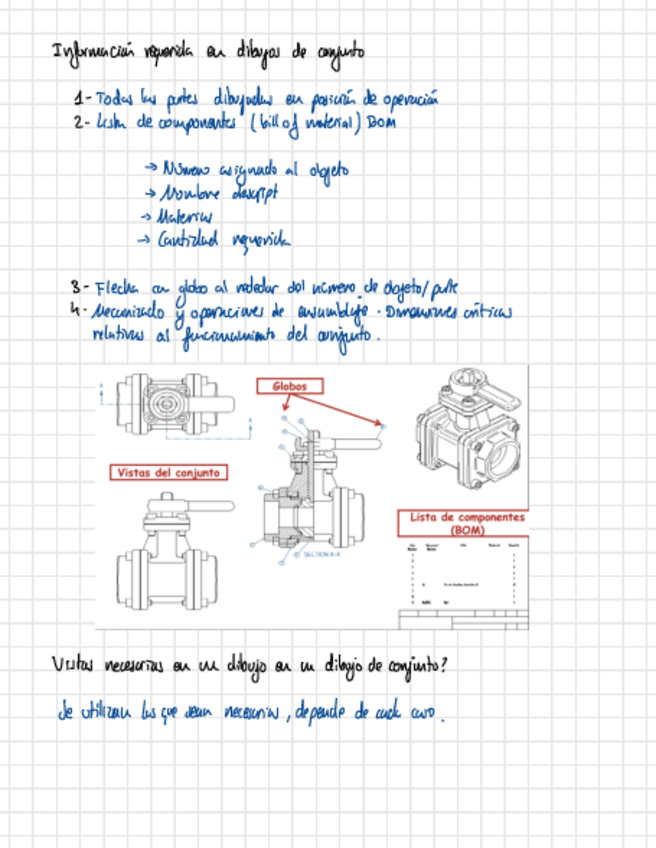 Información requerida en dibujos de conjunto
1- Todas las partes dibujadas en posición de operación
2- Lista de componentes (bill of material) BOM
→ Número asignado al objeto
→ Nombre descript
→ Material
→ Cantidad requerida
3- Flecha con globo al rededor del número de objeto/parte
4- Mecanizado y operaciones de ensamblaje. Dimensiones críticas
relativas al funcionamiento del conjunto.
Globos
A
A
Vistas del conjunto
Lista de componentes
(BOM)
SECTION A-A
Vistas necesarias en un dibujo en un dibujo de conjunto?
Se utilizan las que sean necesarias, depende de cada caso.